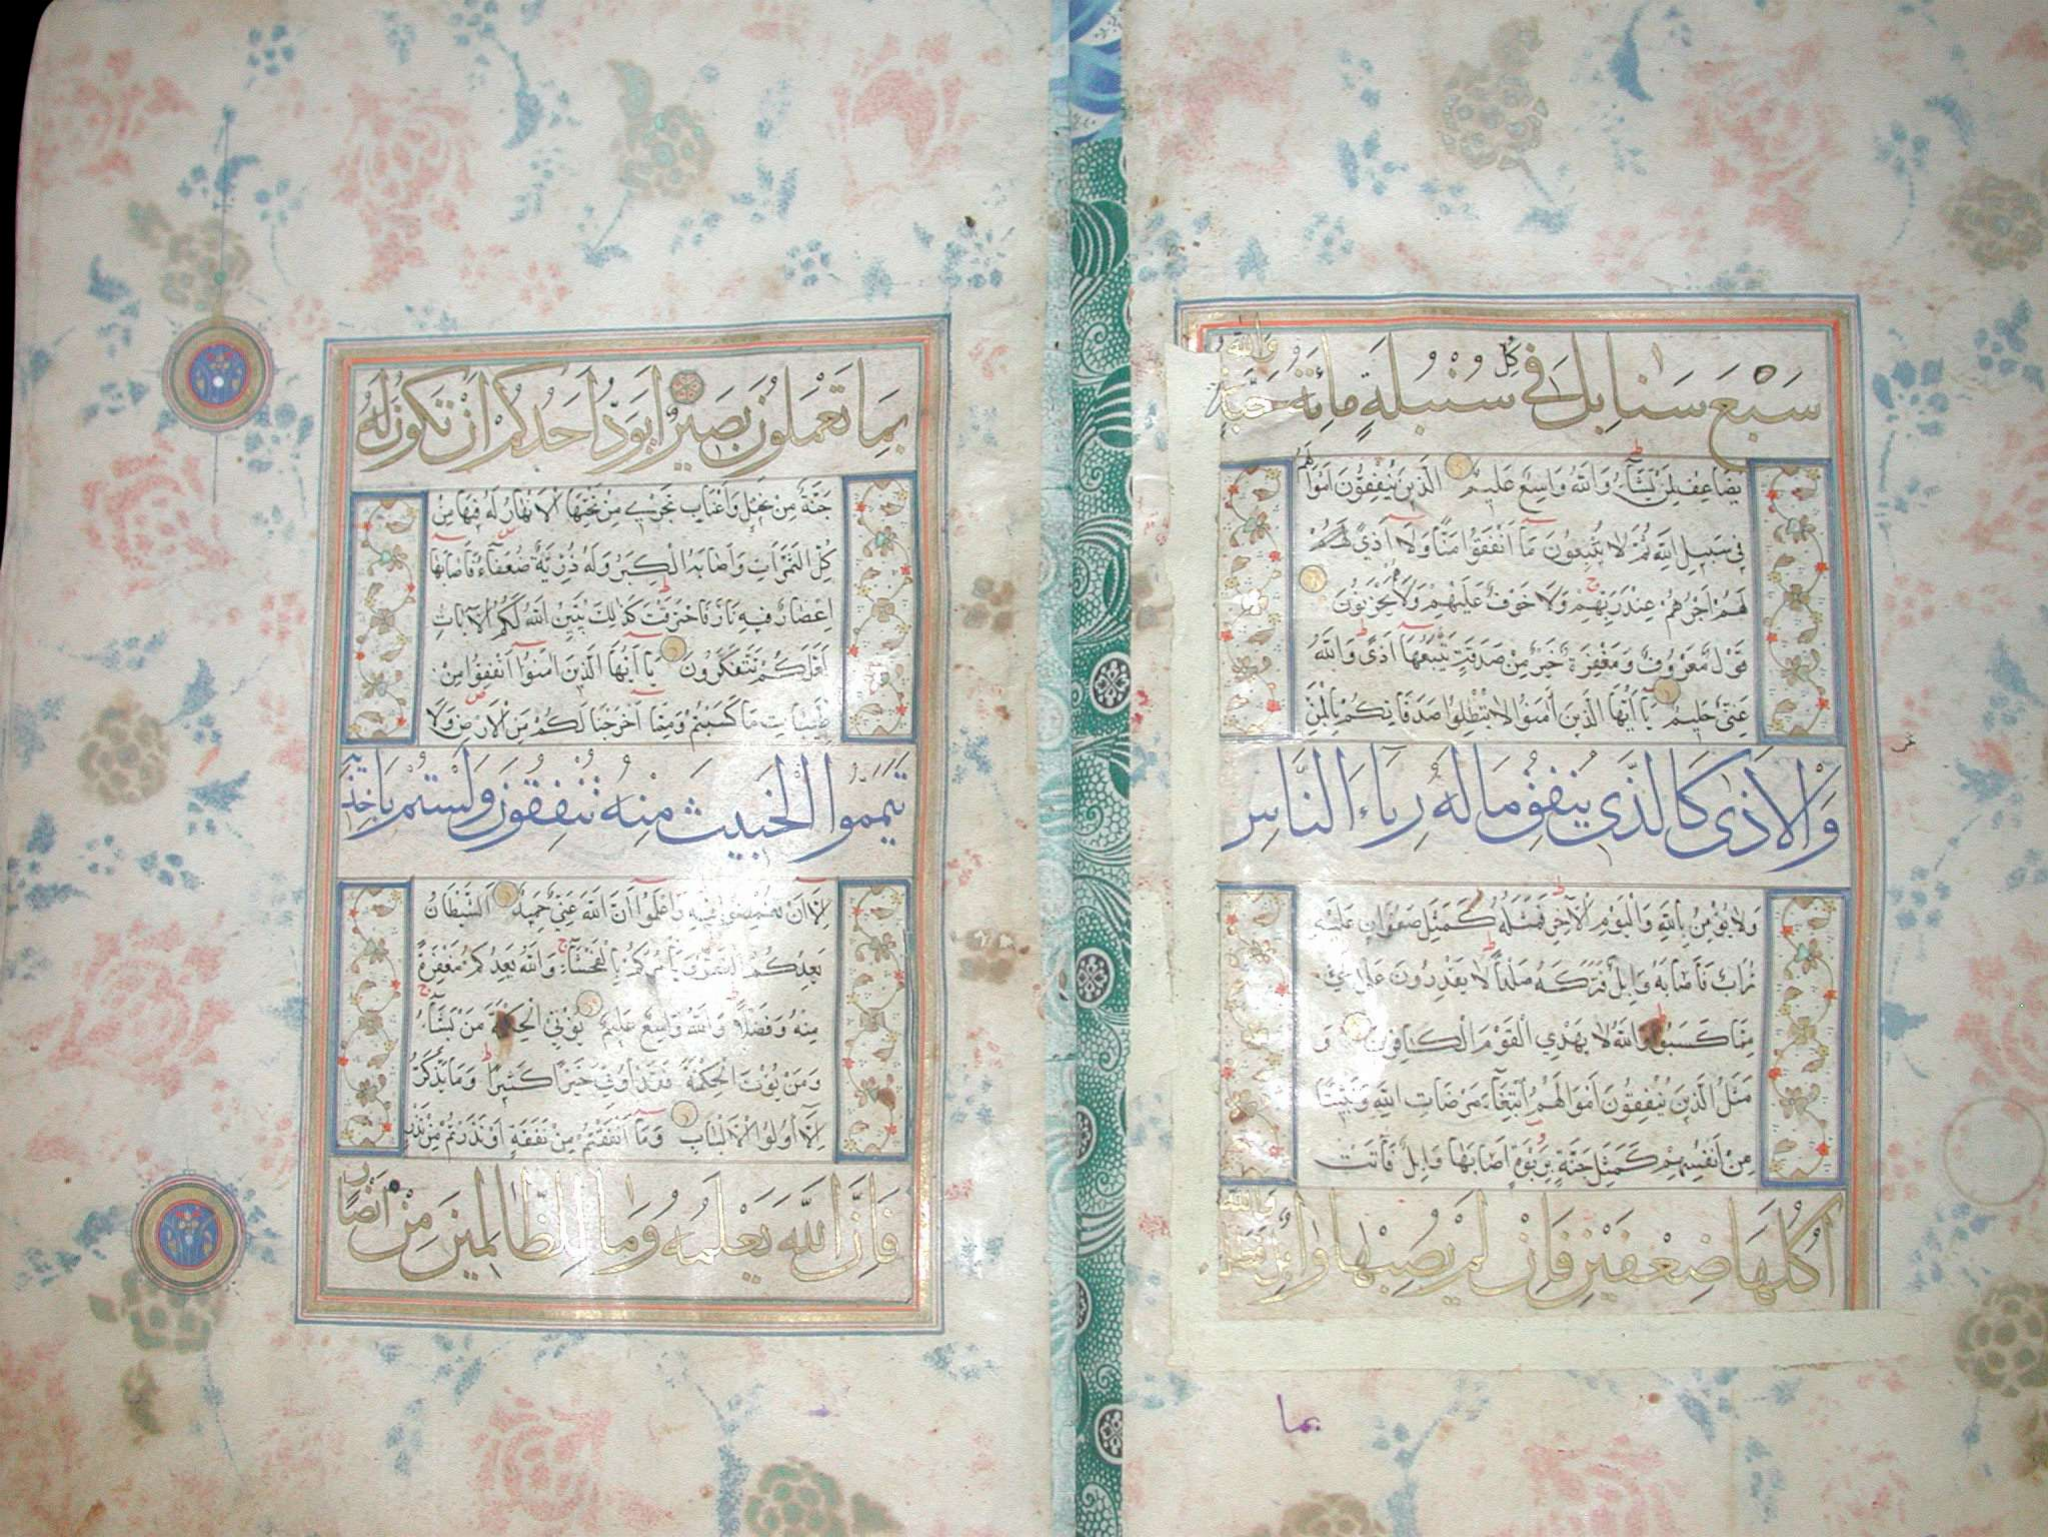 سَبْعَ سَنَابِلَ فِي كُلِّ سُنْبُلَةٍ مِائَةُ حَبَّةٍ وَاللّٰهُ
يُضَاعِفُ لِمَنْ يَشَاءُ وَاللّٰهُ وَاسِعٌ عَلِيمٌ الَّذِينَ يُنْفِقُونَ اَمْوَالَهُمْ
فِي سَبِيلِ اللّٰهِ ثُمَّ لَا يُتْبِعُونَ مَا اَنْفَقُوا مَنًّا وَلَا اَذًى لَهُمْ
لَهُمْ اَجْرُهُمْ عِنْدَ رَبِّهِمْ وَلَا خَوْفٌ عَلَيْهِمْ وَلَا يَحْزَنُونَ
قَوْلٌ مَعْرُوفٌ وَمَغْفِرَةٌ خَيْرٌ مِنْ صَدَقَةٍ يَتْبَعُهَا اَذًى وَاللّٰهُ
غَنِيٌّ حَلِيمٌ يَا اَيُّهَا الَّذِينَ اٰمَنُوا لَا تُبْطِلُوا صَدَقَاتِكُمْ بِالْمَنِّ
وَالْاَذٰى كَالَّذِي يُنْفِقُ مَالَهُ رِيَاءَ النَّاسِ
وَلَا يُؤْمِنُ بِاللّٰهِ وَالْيَوْمِ الْاٰخِرِ فَمَثَلُهُ كَمَثَلِ صَفْوَانٍ عَلَيْهِ
تُرَابٌ فَاَصَابَهُ وَابِلٌ فَتَرَكَهُ صَلْدًا لَا يَقْدِرُونَ عَلٰى شَيْءٍ
مِمَّا كَسَبُوا وَاللّٰهُ لَا يَهْدِي الْقَوْمَ الْكَافِرِينَ وَ
مَثَلُ الَّذِينَ يُنْفِقُونَ اَمْوَالَهُمُ ابْتِغَاءَ مَرْضَاتِ اللّٰهِ وَتَثْبِيتًا
مِنْ اَنْفُسِهِمْ كَمَثَلِ جَنَّةٍ بِرَبْوَةٍ اَصَابَهَا وَابِلٌ فَاٰتَتْ
اُكُلَهَا ضِعْفَيْنِ فَاِنْ لَمْ يُصِبْهَا وَابِلٌ فَطَلٌّ وَاللّٰهُ
بما
بِمَا تَعْمَلُونَ بَصِيرٌ اَيَوَدُّ اَحَدُكُمْ اَنْ تَكُونَ لَهُ
جَنَّةٌ مِنْ نَخِيلٍ وَاَعْنَابٍ تَجْرِي مِنْ تَحْتِهَا الْاَنْهَارُ لَهُ فِيهَا مِنْ
كُلِّ الثَّمَرَاتِ وَاَصَابَهُ الْكِبَرُ وَلَهُ ذُرِّيَّةٌ ضُعَفَاءُ فَاَصَابَهَا
اِعْصَارٌ فِيهِ نَارٌ فَاحْتَرَقَتْ كَذٰلِكَ يُبَيِّنُ اللّٰهُ لَكُمُ الْاٰيَاتِ
لَعَلَّكُمْ تَتَفَكَّرُونَ يَا اَيُّهَا الَّذِينَ اٰمَنُوا اَنْفِقُوا مِنْ
طَيِّبَاتِ مَا كَسَبْتُمْ وَمِمَّا اَخْرَجْنَا لَكُمْ مِنَ الْاَرْضِ وَلَا
تَيَمَّمُوا الْخَبِيثَ مِنْهُ تُنْفِقُونَ وَلَسْتُمْ بِاٰخِذِيهِ
اِلَّا اَنْ تُغْمِضُوا فِيهِ وَاعْلَمُوا اَنَّ اللّٰهَ غَنِيٌّ حَمِيدٌ الشَّيْطَانُ
يَعِدُكُمُ الْفَقْرَ وَيَأْمُرُكُمْ بِالْفَحْشَاءِ وَاللّٰهُ يَعِدُكُمْ مَغْفِرَةً
مِنْهُ وَفَضْلًا وَاللّٰهُ وَاسِعٌ عَلِيمٌ يُؤْتِي الْحِكْمَةَ مَنْ يَشَاءُ
وَمَنْ يُؤْتَ الْحِكْمَةَ فَقَدْ اُوتِيَ خَيْرًا كَثِيرًا وَمَا يَذَّكَّرُ
اِلَّا اُولُوا الْاَلْبَابِ وَمَا اَنْفَقْتُمْ مِنْ نَفَقَةٍ اَوْ نَذَرْتُمْ مِنْ نَذْرٍ
فَاِنَّ اللّٰهَ يَعْلَمُهُ وَمَا لِلظَّالِمِينَ مِنْ اَنْصَارٍ